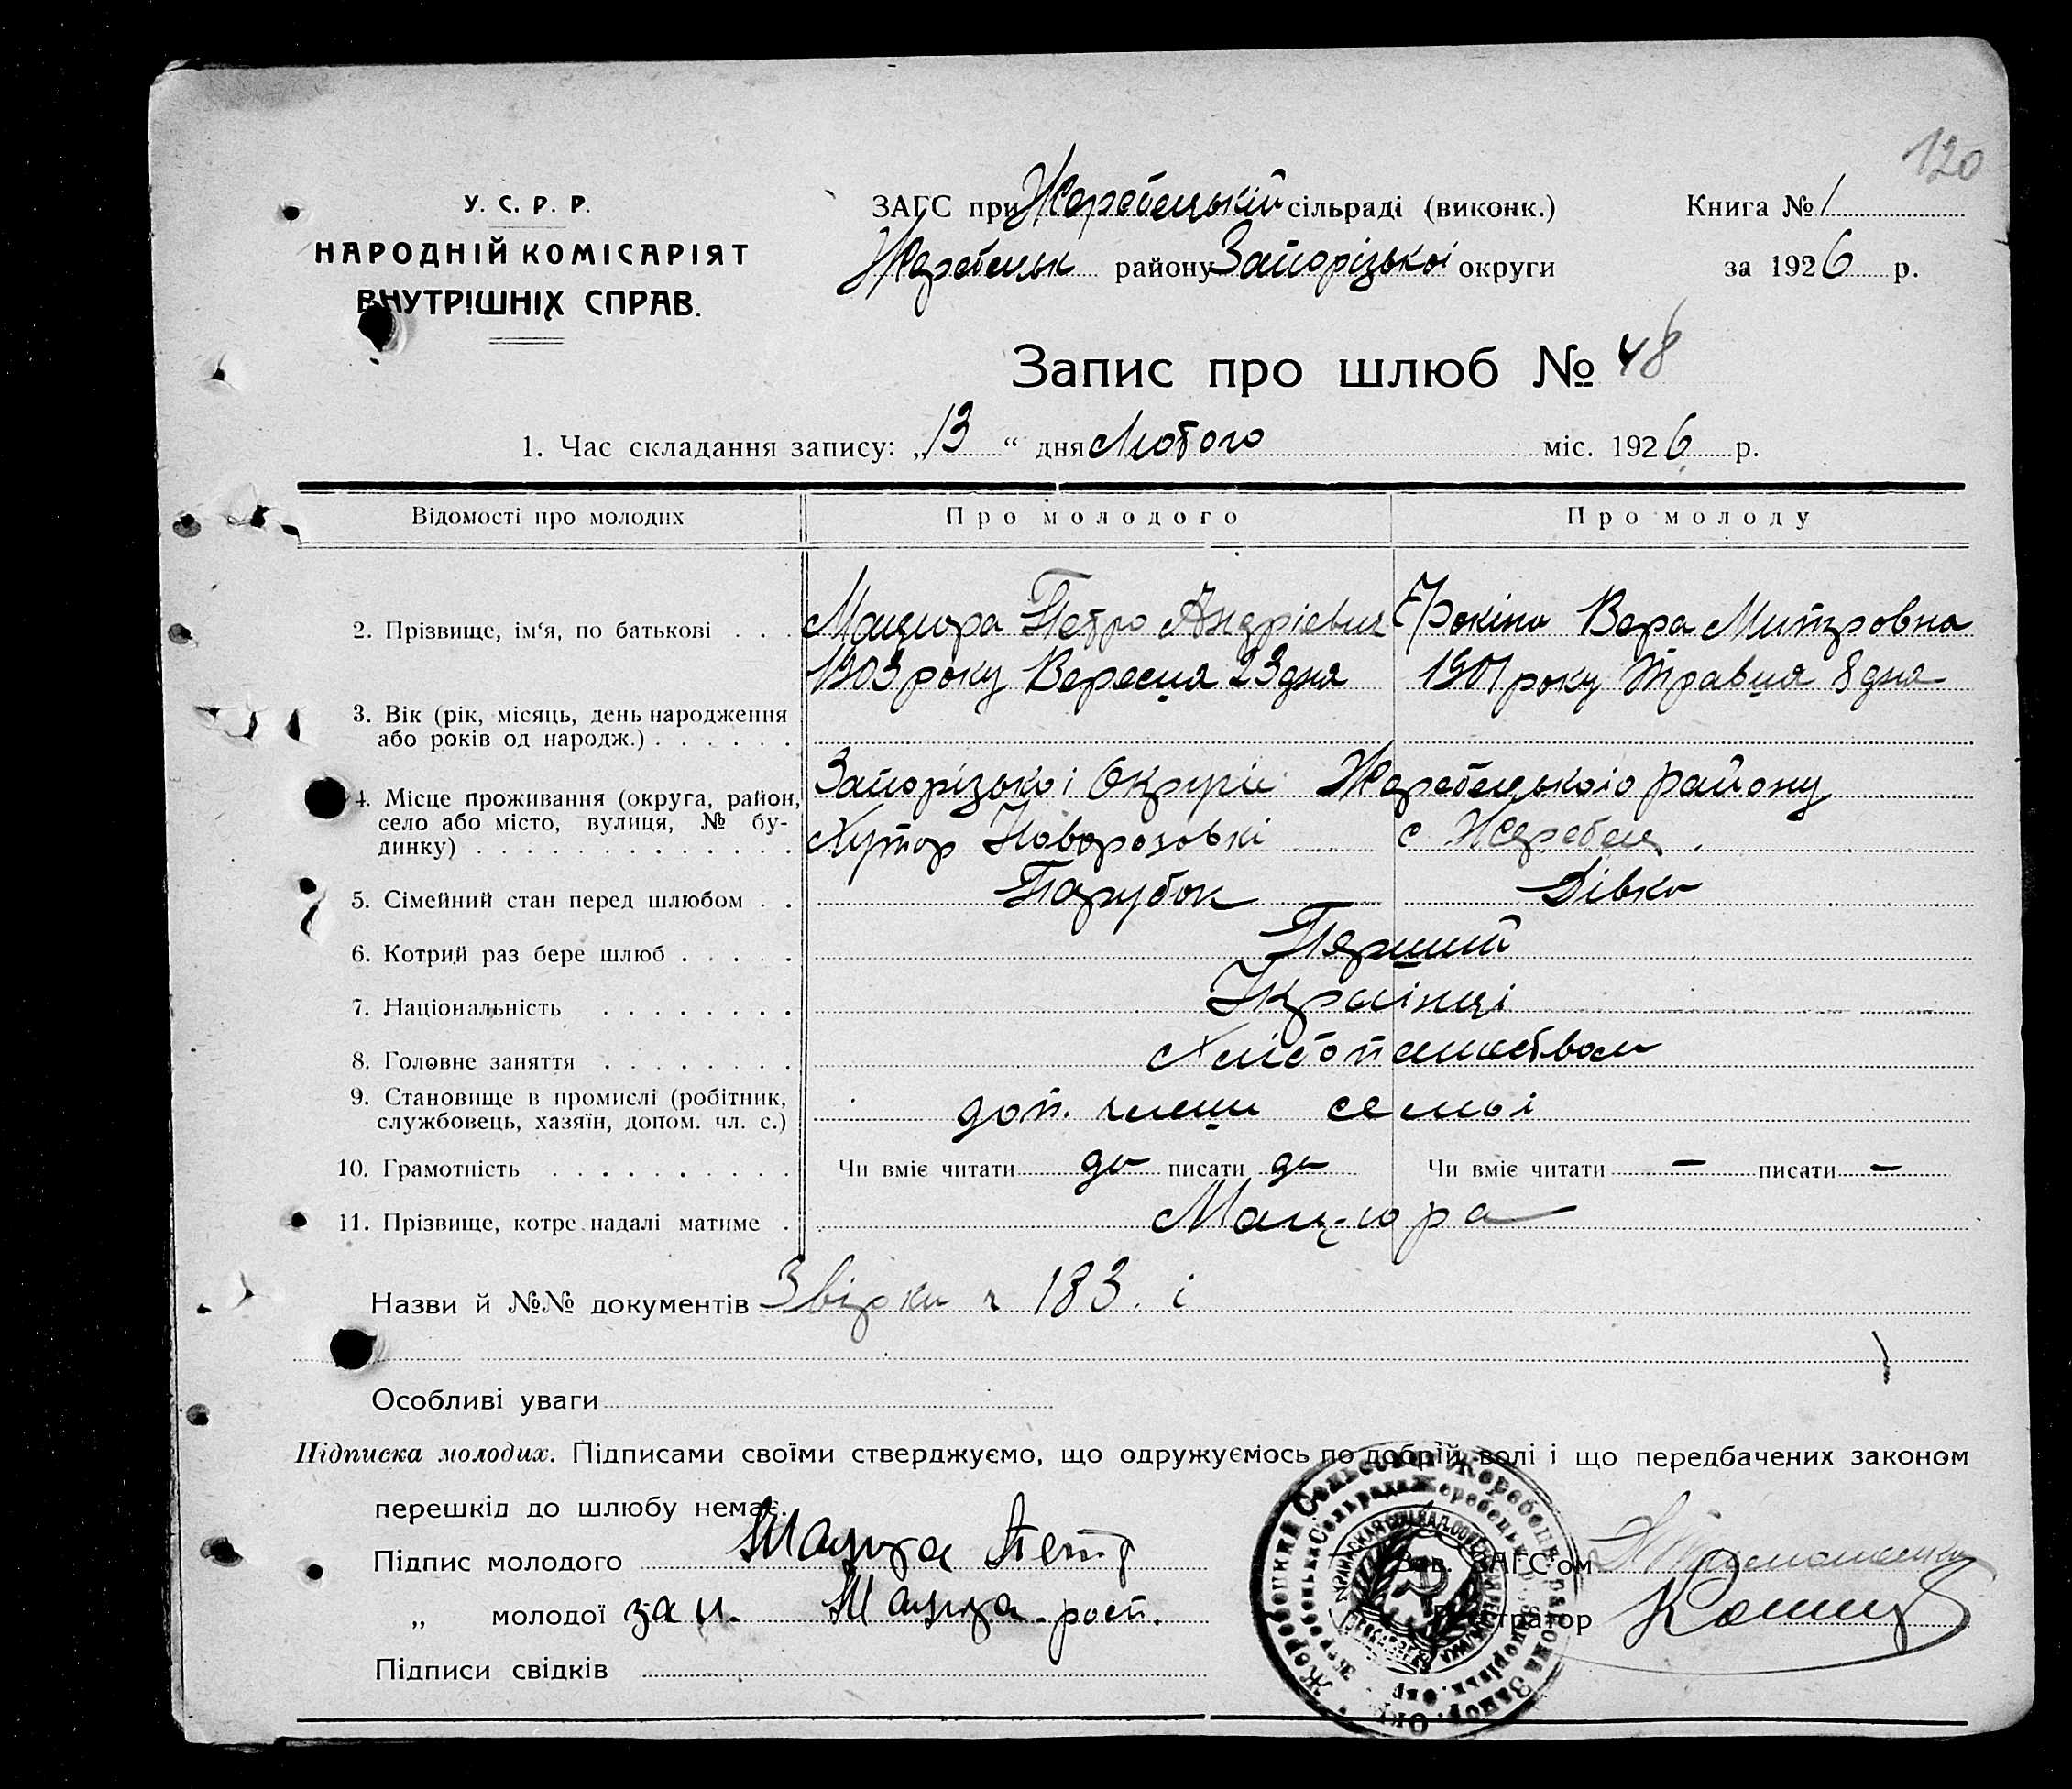 120
У. С. Р. Р.
НАРОДНІЙ КОМІСАРІЯТ
ВНУТРІШНІХ СПРАВ.
ЗАГС при Жеребецькій сільраді (виконк.)
Жеребецьк району Запорізькоі округи
Книга № 1
за 1926 р.
Запис про шлюб № 48
1. Час складання запису: „13“ дня Лютого міс. 1926 р.
Відомості про молодих Про молодого Про молоду
2. Прізвище, ім‘я, по батькові . . . Мацюра Петро Андрієвич Вера Митровна
1903 року Вересця 23 дня 1901 року Травця 8 дня
3. Вік (рік, місяць, день народження
або років од народж.) . . . . . .
4. Місце проживання (округа, район, Запорізькоі Округіи Жеребецького району
село або місто, вулиця, № бу- Хутор с Жеребец
динку) . . . . . . . . . . . . .
5. Сімейний стан перед шлюбом . . Парубок Дівка
6. Котрий раз бере шлюб . . . . . Перший
7. Національність . . . . . . . . Украінці
8. Головне заняття . . . . . . . . Хлібопашеством
9. Становище в промислі (робітник,
службовець, хазяїн, допом. чл. с.) доп. члени семьі
10. Грамотність . . . . . . . . . Чи вміє читати да писати да Чи вміє читати — писати —
11. Прізвище, котре надалі матиме . Мац-юра
Назви й №№ документів Звірки ч 183. і
Особливі уваги
Підписка молодих. Підписами своїми стверджуємо, що одружуємось по добрій волі і що передбачених законом
перешкід до шлюбу немає.
Підпис молодого Мацюра Петр
„ молодої за н. Мацюра росп.
Підписи свідків
Зав. ЗАГС‘ом
Реєстратор